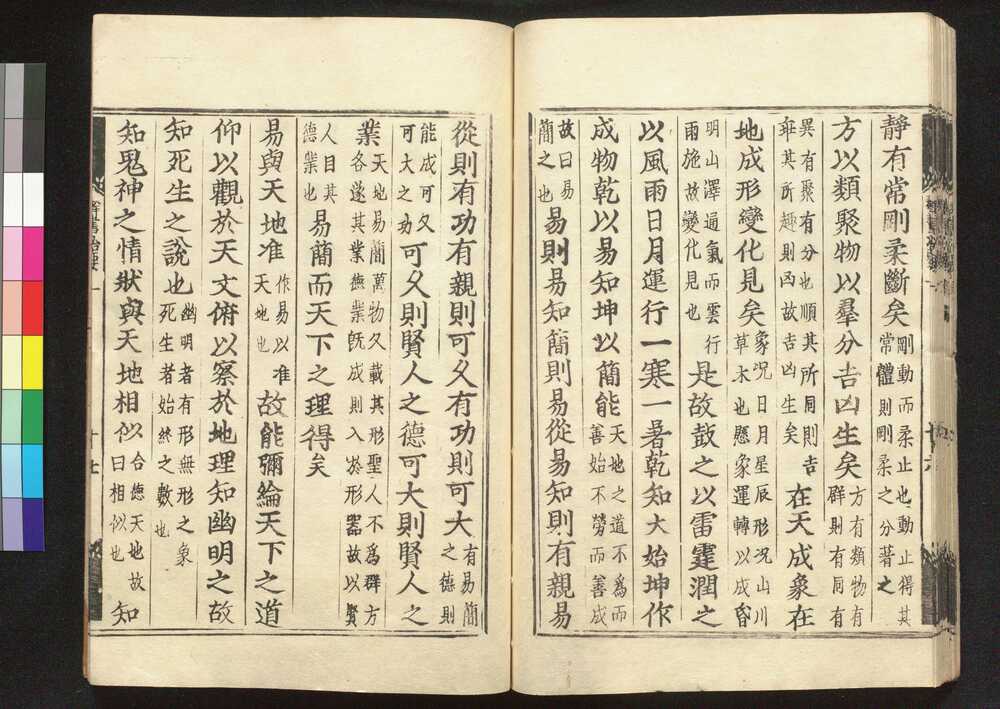 靜有常剛柔斷矣剛動而柔止也動止得其常體則剛柔之分著之
方以類聚物以羣分吉凶生矣方有類物有群則有同有
異有聚有分也順其所同則吉乖其所趣則凶故吉凶生矣在天成象在
地成形變化見矣象況日月星辰形況山川草木也懸象運轉以成昏
明山澤通氣而雲行雨施故變化見也是故鼓之以雷霆潤之
以風雨日月運行一寒一暑乾知大始坤作
成物乾以易知坤以簡能天地之道不為而善始不勞而善成
故曰易簡之也易則易知簡則易從易知則有親易
從則有功有親則可久有功則可大有易簡之德則
能成可久可大之功可久則賢人之德可大則賢人之
業天地易簡萬物久載其形聖人不為群方各遂其業德業既成則入於形器故以賢
人目其德業也易簡而天下之理得矣
易與天地准作易以准天地也故能彌綸天下之道
仰以觀於天文俯以察於地理知幽明之故
知死生之說也幽明者有形無形之象死生者始終之數也
知鬼神之情狀與天地相似合德天地故曰相似也知
十七